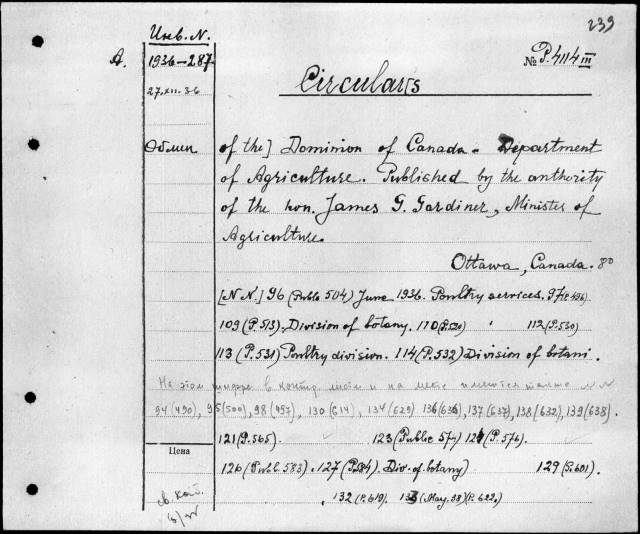 239
Инв. N.
А. 1936-287 № P.4114 III
27.XII.36
Circular[s
Обмен of the] Dominion of Canada. Department
of Agriculture. Published by the authority
of the hon. James G. Gardiner, Minister of
Agriculture.
Ottawa, Canada. 8º
[N.N.] 96 (Publ. 504) June 1936. Poultry services. 97 (P. 496)
109 (P. 513). Division of botany. 110 (P. 520) " 112 (P. 530)
113 (P. 531) Poultry division. 114 (P. 532) Division of botani.
На этом шифре в контр. листки и на месте имеются только N N
94 (490), 95 (500), 98 (497), 130 (614), 134 (629) 136 (636), 137 (637), 138 (632), 139 (638).
121 (P. 565). 123 (Public 574) 124 (P. 576).
Цена
126 (Publ. 583). 127 (P. 584). Div. of botany) 129 (P. 601).
132 (P. 619). 133 (May. 38) (P. 622).